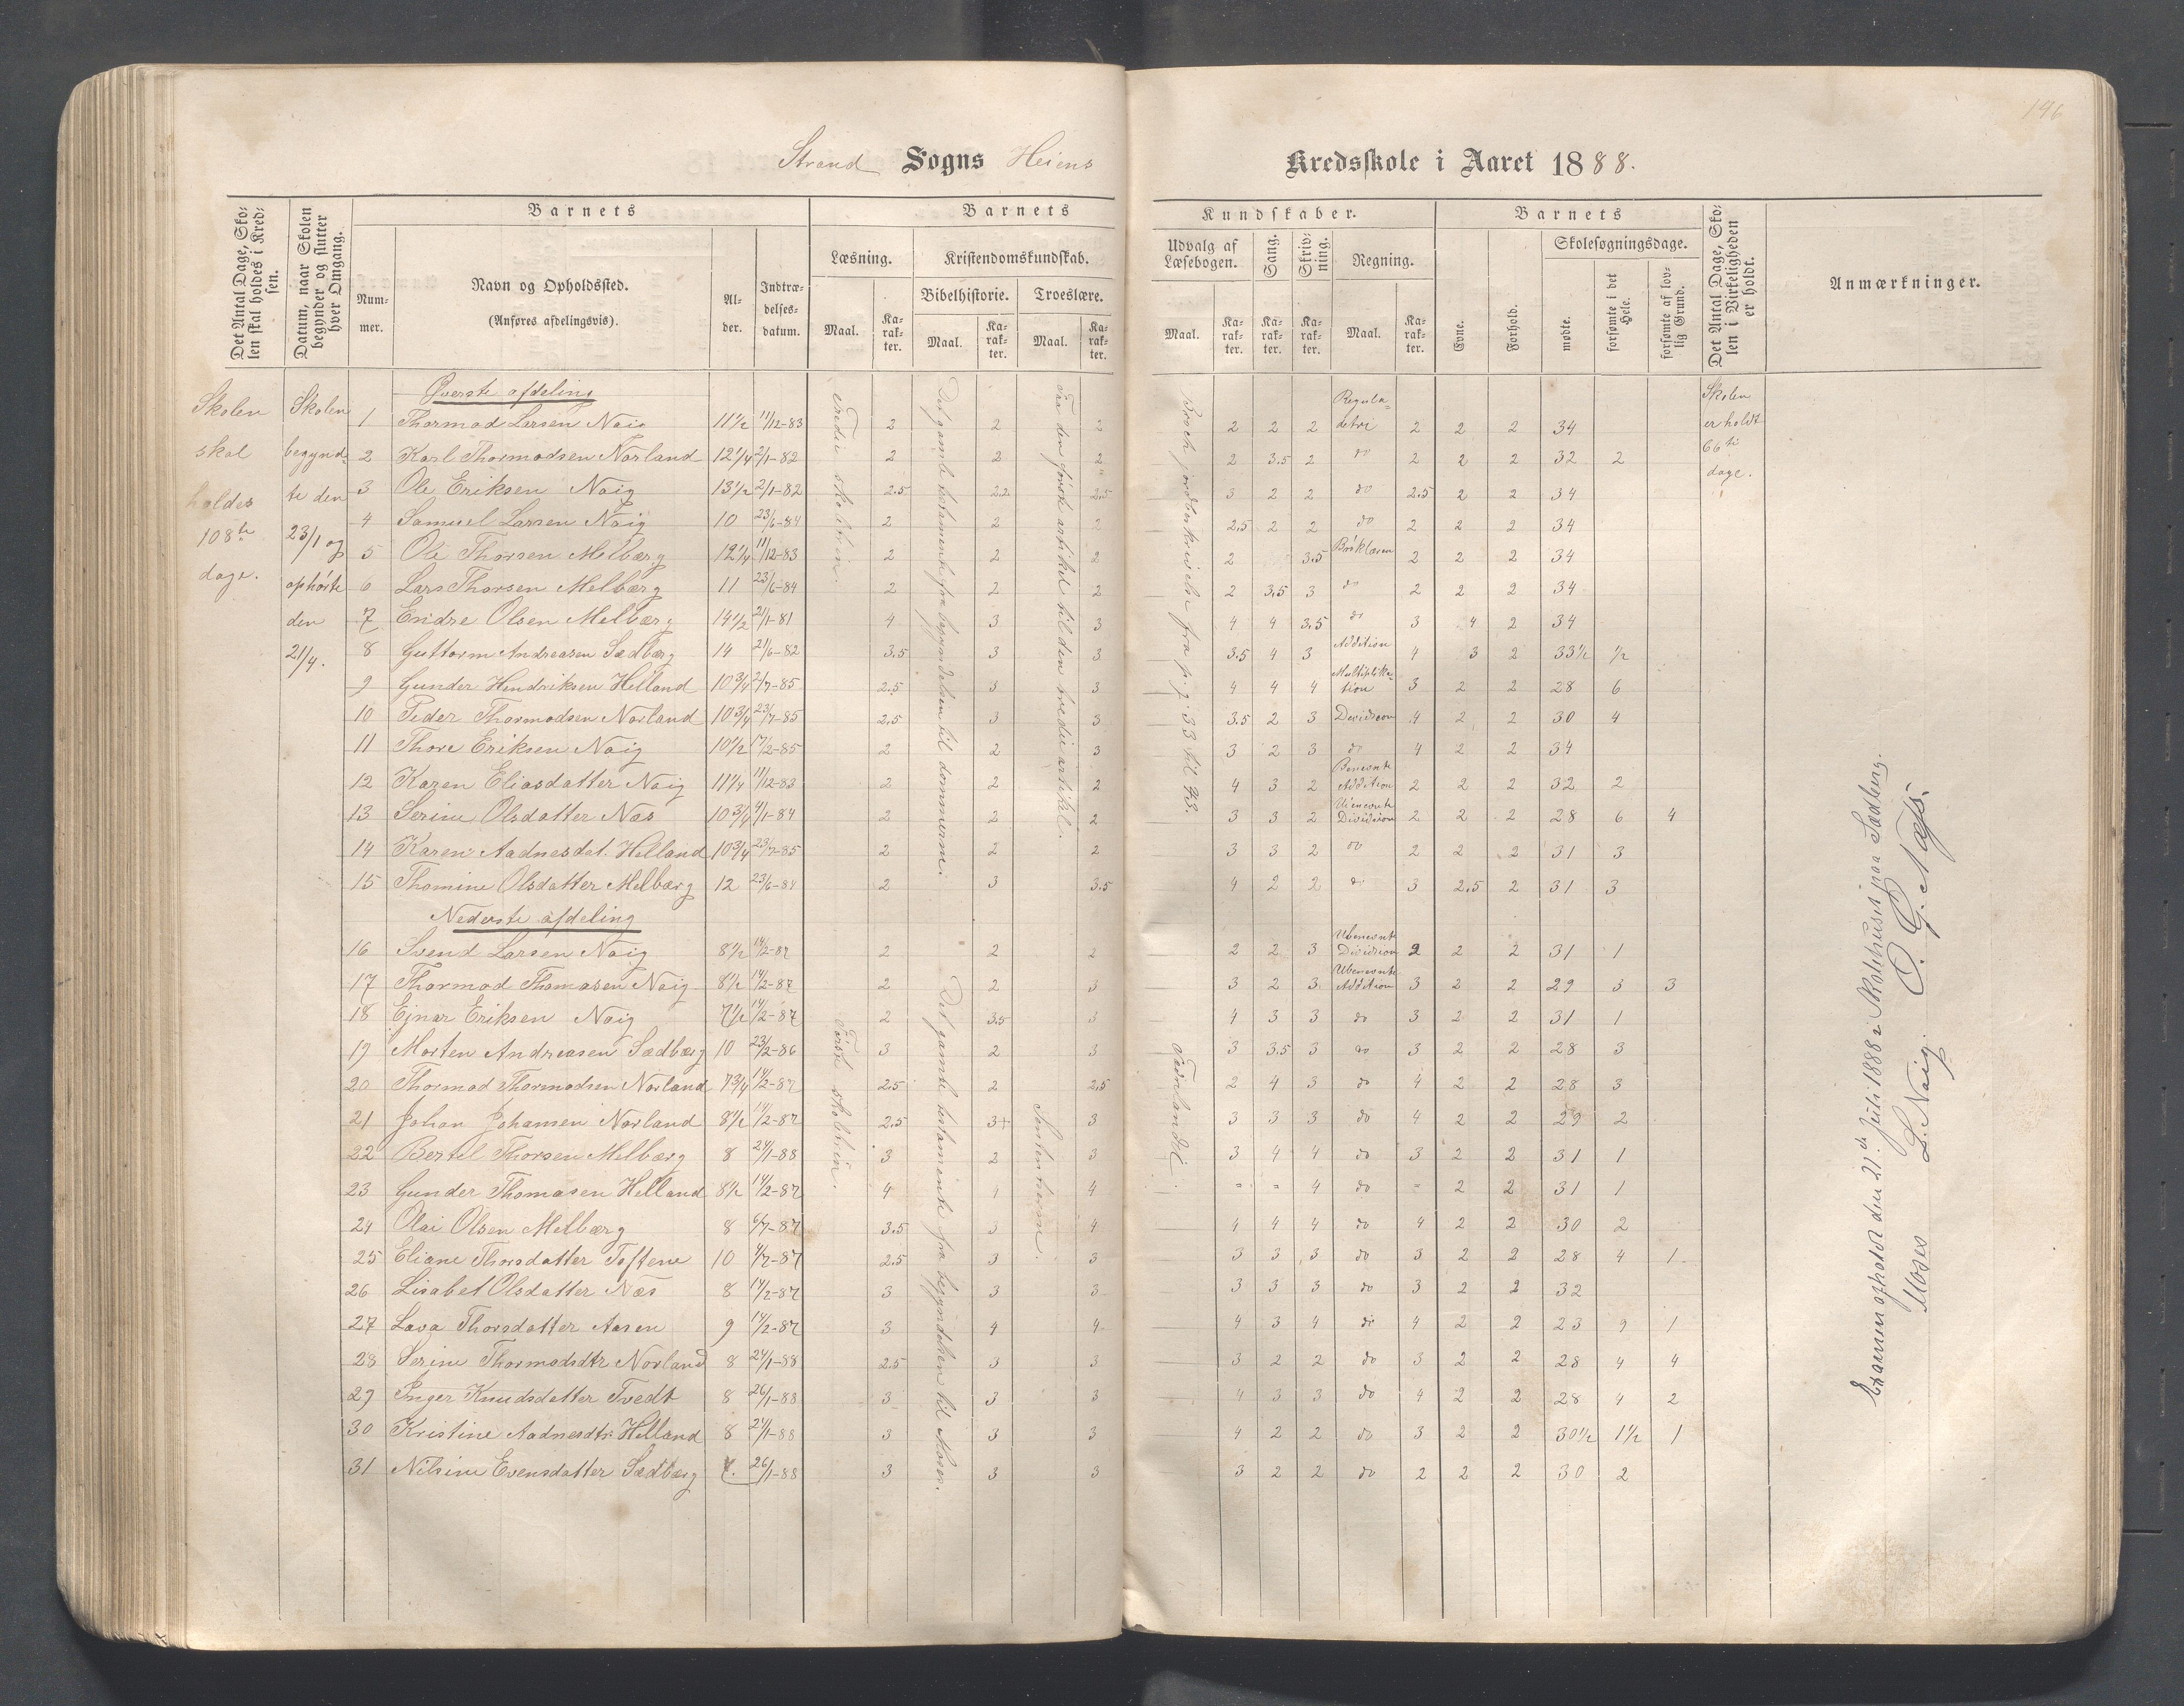 196
Strand Sogns Heiens Kredsskole i Aaret 1888.
Det Antal Dage, Skolen skal holdes i Kredsen.
Datum, naar Skolen begynder og slutter hver Omgang.
Barnets
Nummer.
Navn og Opholdssted.
(Anføres afdelingsvis).
Alder.
Indtrædelsesdatum.
Barnets Kundskaber.
Læsning.
Kristendomskundskab.
Bibelhistorie. Troeslære.
Udvalg af Læsebogen.
Sang.
Skrivning.
Regning.
Maal. Karakter. Maal. Karakter. Maal. Karakter. Maal. Karakter. Karakter. Karakter. Maal. Karakter.
Barnets
Evne.
Forhold.
Skolesøgningsdage.
mødte.
forsømte i det Hele.
forsømte af lovlig Grund.
Det Antal Dage, Skolen i Virkeligheden er holdt.
Anmærkninger.
Skolen skal holdes 108te dage.
Skolen begyndte den 23/1 og ophørte den 21/4.
Skolen er holdt 66ti dage.
Øverste afdeling
1 Thormod Larsen Naig 11 1/2 11/12-83 2 2 2 2 2 2 Regula detri 2 2 2 34
2 Karl Thormodsen Norland 12 1/4 2/1-82 2 2 2 2 3.5 2 do 2 2 2 32 2
3 Ole Eriksen Naig 13 1/2 2/1-82 2.5 2.2 2.5 3 2 2 do 2.5 2 2 34
4 Samuel Larsen Naig 10 23/6-84 2 2 2 2.5 2 2 do 2 2 2 34
5 Ole Thorsen Melbærg 12 1/4 11/12-83 2 2 2 2 3.5 Brøklæren 2 2 2 34
6 Lars Thorsen Melbærg 11 23/6-84 2 2 2 2 3.5 3 do 2 2 2 34
7 Endre Olsen Melbærg 14 1/2 21/1-81 4 3 3 4 4 3.5 do 3 4 2 34
8 Guttorm Andreasen Sædbærg 14 21/6-82 3.5 3 3 3.5 4 3 Addition 4 3 2 33 1/2 1/2
9 Gunder Hendriksen Helland 10 3/4 2/7-85 2.5 3 3 4 4 4 Multiplikation 3 2 2 28 6
10 Peder Thormodsen Norland 10 3/4 23/7-85 2.5 3 3 3.5 2 3 Devidsion 4 2 2 30 4
11 Thore Eriksen Naig 10 1/2 17/2-85 2 2 3 3 2 3 do 4 2 2 34
12 Karen Eliasdatter Naig 11 1/4 11/12-83 2 2 2 4 3 2 Benevnte Addition 2 2 2 32 2
13 Serine Olsdatter Næs 10 3/4 4/1-84 2 2 2 3 3 2 Division 2 2 2 28 6 4
14 Karen Aadnesdat. Helland 10 3/4 23/7-85 2 2 2 3 3 2 do 2 2 2 31 3
15 Thomine Olsdatter Melbærg 12 23/6-84 2 3 3.5 4 2 2 do 3 2.5 2 31 3
Nederste afdeling
16 Svend Larsen Naig 8 1/2 14/2-87 2 2 2 2 2 3 Ubenevnte Dividsion 2 2 2 31 1
17 Thormod Thomasen Naig 8 1/2 14/2-87 2 2 3 3 2 3 Ubenevnte Addition 3 2 2 29 5 3
18 Ejnar Eriksen Naig 7 1/2 14/2-87 2 3.5 3 4 3 3 do 3 2 2 31 1
19 Morten Andreasen Sædbærg 10 23/2-86 3 2 3 3 3.5 3 do 3 2 2 28 3
20 Thormod Thormodsen Norland 7 3/4 14/2-87 2.5 2 2.5 2 4 3 do 4 2 2 28 3
21 Johan Johansen Norland 8 1/2 14/2-87 2.5 3+ 3 3 3 3 do 4 2 2 29 2
22 Bertel Thorsen Melbærg 8 24/1-88 3 2 3 3 4 4 do 3 2 2 31 1
23 Gunder Thomasen Helland 8 1/2 14/2-87 4 4 4 " " 4 do " 2 2 31 1
24 Olai Olsen Melbærg 8 6/7-87 3.5 3 4 4 4 4 do 4 2 2 30 2
25 Eliane Thorsdatter Toftene 10 4/7-87 2.5 3 3 3 3 3 do 3 2 2 28 4 1
26 Lisabet Olsdatter Næs 8 14/2-87 3 3 3 3 3 3 do 3 2 2 32
27 Lava Thorsdatter Aasen 9 14/2-87 3 4 4 4 3 4 do 4 2 2 23 9 1
28 Serine Thormodsdtr Norland 8 24/1-88 2.5 3 3 3 2 2 do 3 2 2 28 4 4
29 Inger Knudsdatter Tvedt 8 26/1-88 3 3 3 4 3 3 do 4 2 2 28 4 2
30 Kristine Aadnesdtr Helland 8 24/1-88 3 3 3 4 2 2 do 3 2 2 30 1/2 1 1/2 1
31 Nilsine Evensdatter Sædbærg 7. 26/1-88 3 3 3 3 2 2 do 2 2 2 30 2
Tredie skoletrin.
Det gamle testamente fra begyndelsen til dommerne.
Fra den første artikel til den tredie artikel.
Broch jordbeskrivelse fra p. g. 33 til 43.
Første skoletrin.
Det gamle testamente fra begyndelsen til Moses.
Fædrelandet.
Examen afholdt den 21de Juli 1888 i Skolehuset paa Sædberg.
Moses L. Naig. O. G. Næss.